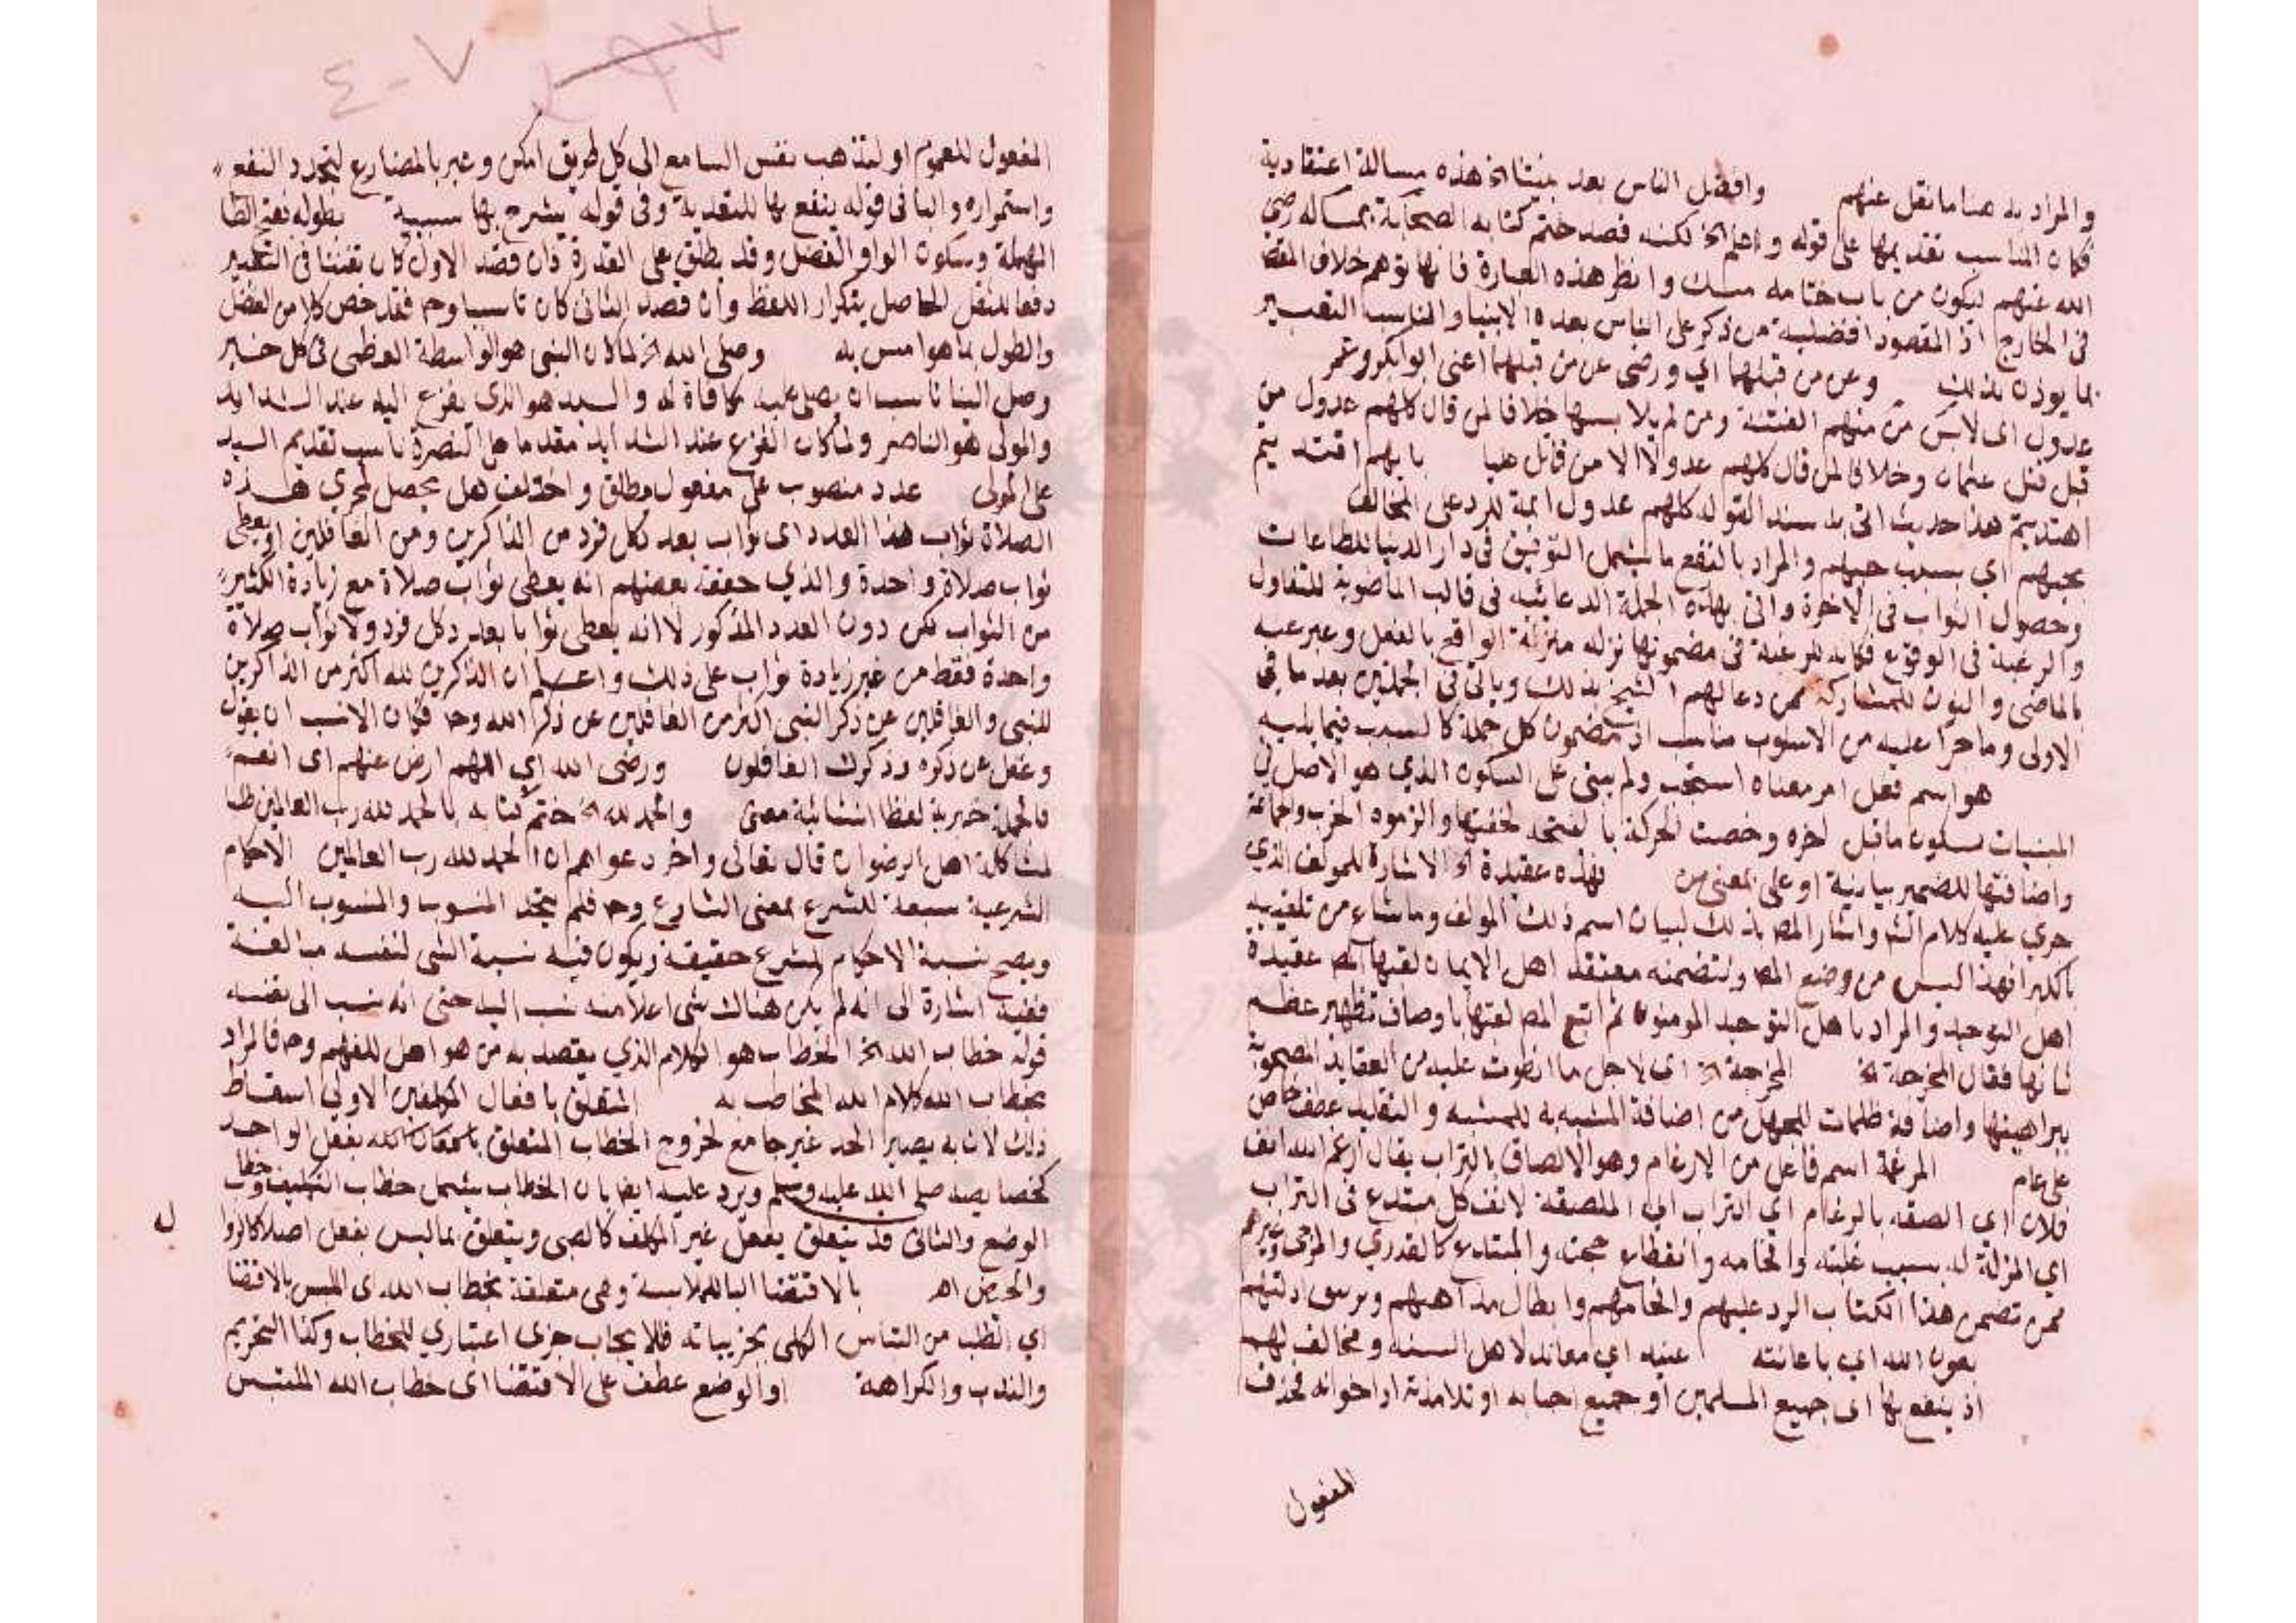 والمراد به هنا ما نقل عنهم وافضل الناس بعد نبينا الخ هذه مسالة اعتقادية
فكان المناسب تقديمها على قوله واعلم الخ لكنه قصد ختم كتابه الصحابة بمساله رضي
الله عنهم ليكون من باب ختامه مسك وانظر هذه العبارة فانها توهم خلاف المقصد
في الخارج اذ المقصود افضلية من ذكر على الناس بعده الانبيا والمناسب التعبير
بما يوذن بذلك وعن من قبلهما اي ورضي عن من قبلهما اعنى ابو ابكر وعمر
عدول اى لابس من منهم الفتنة ومن لم يلابسها خلافا لمن قال كلهم عدول من
قبل قتل عثمان وخلافا لمن قال كلهم عدولا الا من قاتل عليا بايهم اقتد يتم
اهتديتم هذا حديث اتى به سند القوله كلهم عدول ايمة للرد على المخالف
بحبهم اي بسبب حبهم والمراد بالنفع ما يشمل التوفيق فى دار الدنيا للطاعات
وحصول الثواب فى الاخرة واتى بهذه الجملة الدعائيه فى قالب الماضوية للتفاول
والرغبة فى الوقوع فكانه للرغبة فى مضمونها نزله منزلة الواقع بالفعل وعبر عنه
بالماضى والنون للمشاركة ممن دعا لهم الشيخ بذلك وياتى فى الجملتين بعد ما فى
الاولى وما جرا عليه من الاسلوب مناسب اذ مضمون كل جملة كالسبب فيما يليه
هو اسم فعل امر معناه استجب ولم يبنى على السكون الذي هو الاصل في
المبنيات لسكون ما قبل اخره وخصت الحركة بالفتحة لخفتها والزموه الحزب والجماعة
واضافتها للضمير بيانية او على معنى من فهذه عقيدة الخ الاشارة للمولف الذي
جرى عليه كلام الش واشار المص بذلك لبيان اسم ذلك المولف وما شاع من تلقيبه
بالكبرا فهذا ليس من وضع المص ولتضمنه معتقد اهل الايمان لقبها المص عقيدة
اهل التوحيد والمراد باهل التوحيد المومنون ثم اتبع المص لعتها باوصاف تظهر عظم
شانها فقال المخرجة الخ المخرجة الخ اى لاجل ما انطوت عليه من العقايد المصحوبة
ببراهينها واضافة ظلمات للجهل من اضافة المشبه به للمشبه والتقليد عطف خاص
على عام المرغمة اسم فاعل من الارغام وهو الالصاق بالتراب يقال ارغم الله انف
فلان اي الصقه بالرغام اي التراب اي الملصقة لانف كل مبتدع فى التراب
اي المذلة له بسبب غلبته وافحامه وانقطاع حجته والمبتدع كالقدري والمرجى وغيرهم
ممن تضمن هذا الكتاب الرد عليهم وافحامهم وابطال مذاهبهم وتزييف ادلتهم
بعون الله اي باعانته عنيد اي معاند لاهل السنه ومخالف لهم
اذ ينفع بها اى جميع المسلمين او جميع احبابه او تلامذته او اخوانه فحذف
المفعول
٤-٧
المفعول للعموم او لتذهب نفس السامع الى كل طريق امكن وعبر بالمضارع لتجدد النفع
واستمراره والبا فى قوله ينفع بها للتعدية وفى قوله يشرح بها سببية بطوله بفتح الطا
المهملة وسكون الواو الفضل وقد يطلق على القدرة فان قصد الاول كان تفننا فى التعبير
دفعا للثقل الحاصل بتكرار اللفظ وان قصد الثانى كان تاسيسا وح فقد خص كلا من الفضل
والطول بما هو امس به وصلى الله الخ لما كان النبى هو الواسطة العظمى فى كل خير
وصل الينا ناسب ان يصلى عليه مكافاة له والسيد هو الذى يفزع اليه عند الشدايد
والمولى هو الناصر ولما كان الفزع عند الشدايد مقدما على النصرة ناسب تقديم السيد
على المولى عدد منصوب على مفعول مطلق واختلف هل يحصل لمجري هذه
الصلاة ثواب هذا العدد اى ثواب بعد كل فرد من الذاكرين ومن الغافلين او يعطى
ثواب صلاة واحدة والذي حققه بعضهم انه يعطى ثواب صلاة مع زيادة الكثير
من الثواب لكن دون العدد المذكور لا انه يعطى ثوابا بعدد كل فرد ولا ثواب صلاة
واحدة فقط من غير زيادة ثواب على ذلك واعلم ان الذاكرين لله اكثر من الذاكرين
للنبى والغافلين عن ذكر النبى اكثر من الغافلين عن ذكر الله وح فكان الانسب ان يقول
وغفل عن ذكره وذكرك الغافلون ورضى الله اي اللهم ارض عنهم اى انعم
فالجملة خبرية لفظا انشائية معنى والحمد لله الخ ختم كتابه بالحمد لله رب العالمين طلبا
لمشاكلة اهل الرضوان قال تعالى واخر دعواهم ان الحمد لله رب العالمين الاحكام
الشرعية سبعة للشرع بمعنى الشارع وح فلم يتحد المنسوب والمنسوب اليه
ويصح نسبة الاحكام للشرع حقيقة ويكون فيه نسبة الشى لنفسه مبالغة
ففيه اشارة الى انه لم يكن هناك شى اعلا منه نسب اليه حتى انه نسب الى نفسه
قوله خطاب الله الخ الخطاب هو الكلام الذي يقصد به من هو اهل للفهم وح فالمراد
بخطاب الله كلام الله المخاطب به المتعلق بافعال المكلفين الاولى اسقاط
ذلك لاتيانه يصير الحد غير جامع لخروج الخطاب المتعلق بفعل الواحد
كخصايصه صلى الله عليه وسلم ويرد عليه ايضا بان الخطاب يشمل خطاب التكليف وخطاب
الوضع والثانى قد يتعلق بفعل غير المكلف كالصبى ويتعلق بما ليس بفعل اصلا كالزوال
والحيض اه بالاقتضا البا للملابسة وهى متعلقة بخطاب الله اى الملتبس بالاقتضا
اي الطلب من التباس الكلى بجزيياته فالايجاب جزى اعتباري للخطاب وكذا التحريم
والندب والكراهة او الوضع عطف على الاقتضا اى خطاب الله الملتبس